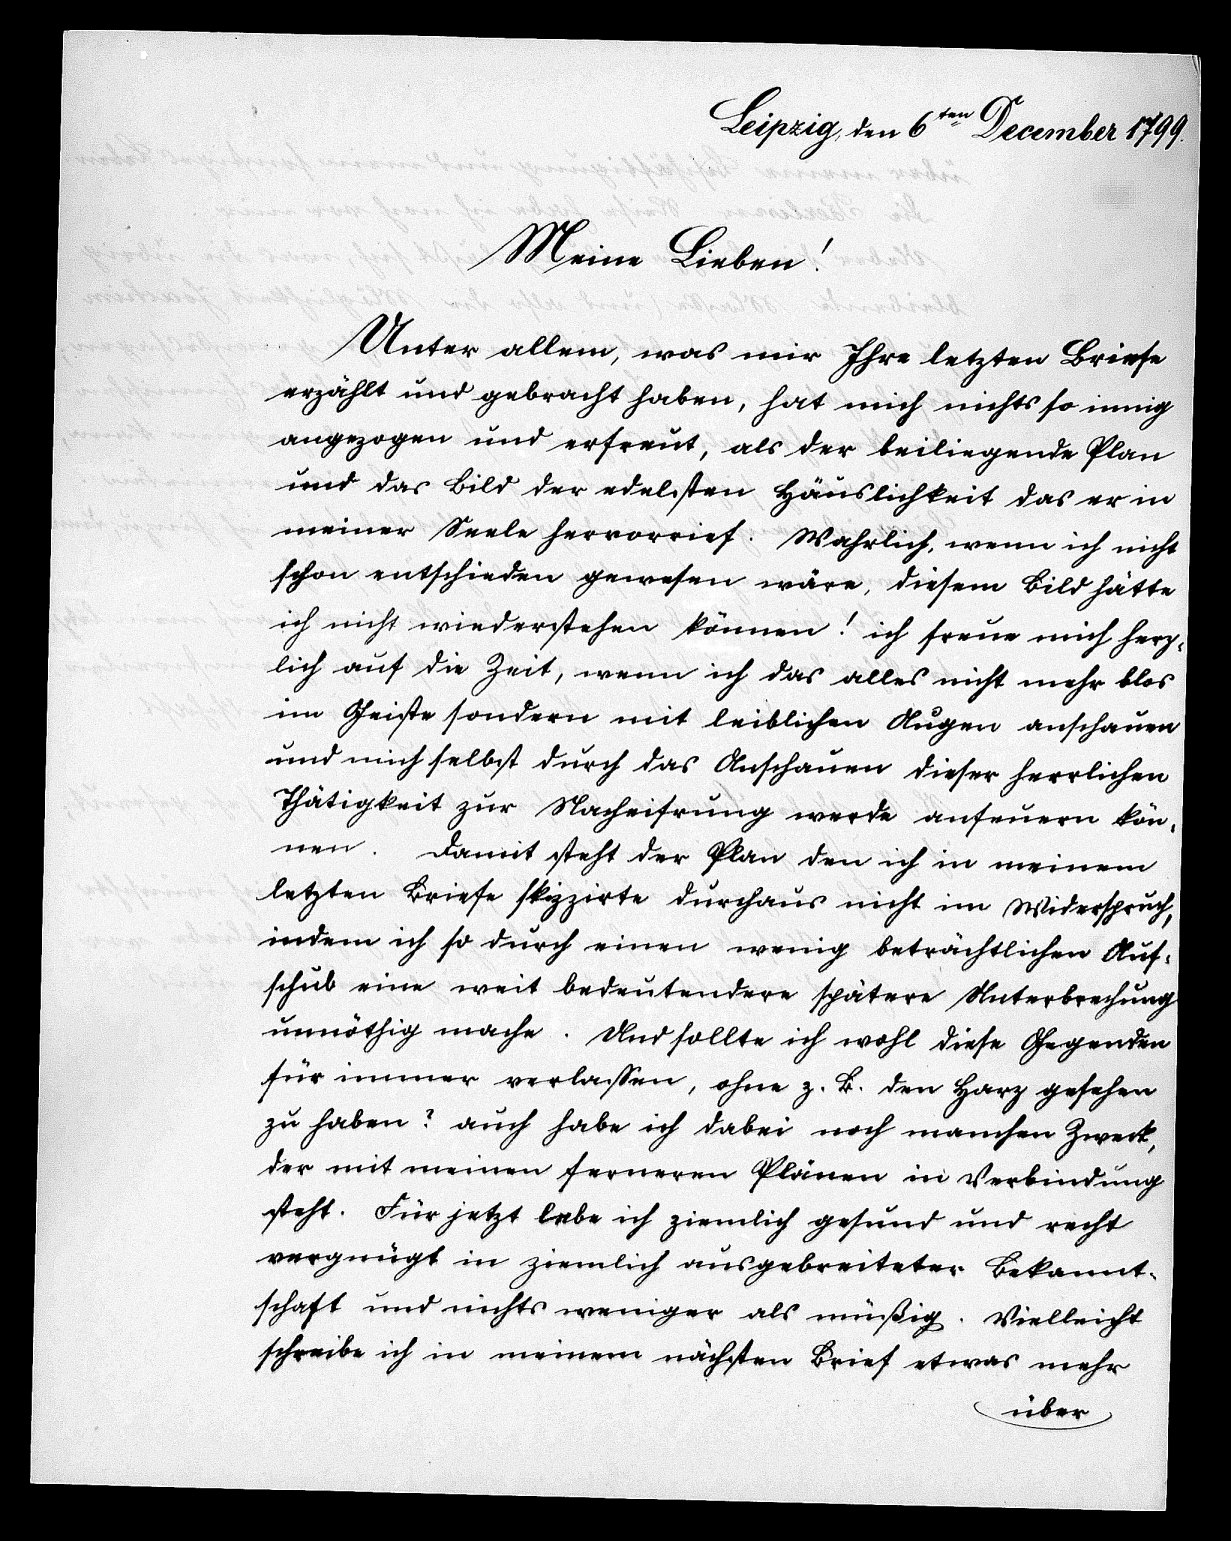 Leipzig, den 6ten December 1799.
Meine Lieben!
Unter allem, was mir Ihre letzten Briefe
erzählt und gebracht haben, hat mich nichts so innig
angezogen und erfreut, als der beiliegende Plan
und das Bild der edelsten Häuslichkeit das er in
meiner Seele hervorrief. Wahrlich, wenn ich nicht
schon entschieden gewesen wäre, diesem Bild hätte
ich nicht wiederstehen können! ich freue mich herz-
lich auf die Zeit, wenn ich das alles nicht mehr blos
im Geiste sondern mit leiblichen Augen anschauen
und mich selbst durch das Anschauen dieser herrlichen
Thätigkeit zur Nacheifrung werde anfeuern kön-
nen. Damit steht der Plan den ich in meinem
letzten Briefe skizzirte durchaus nicht im Widerspruch,
indem ich so durch einen wenig beträchtlichen Auf-
schub eine weit bedeutendere spätere Unterbrechung
unnöthig mache. Und sollte ich wohl diese Gegenden
für immer verlassen, ohne z. B. den Harz gesehen
zu haben? auch habe ich dabei noch manchen Zweck,
der mit meinen ferneren Plänen in Verbindung
steht. Für jetzt lebe ich ziemlich gesund und recht
vergnügt in ziemlich ausgebreiteter Bekannt-
schaft und nichts weniger als müßig. Vielleicht
schreibe ich in meinem nächsten Brief etwas mehr
über